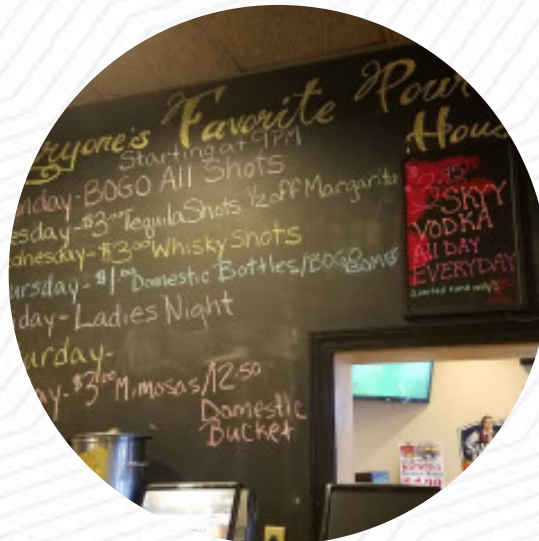 ryone's Favorite Pour
Hous
Starting at 9PM
nday-BOGO All Shots
esday-$3.00 Tequila Shots ½ off Margarita
dnesday-$3.00 Whisky Shots
ursday-$1.00 Domestic Bottles/BOGO Bombs
iday-Ladies Night
urday-
ay-$3.00 Mimosas/12.50
Domestic
Bucket
SKYY
VODKA
All DAY
EVERYDAY
Limited time only